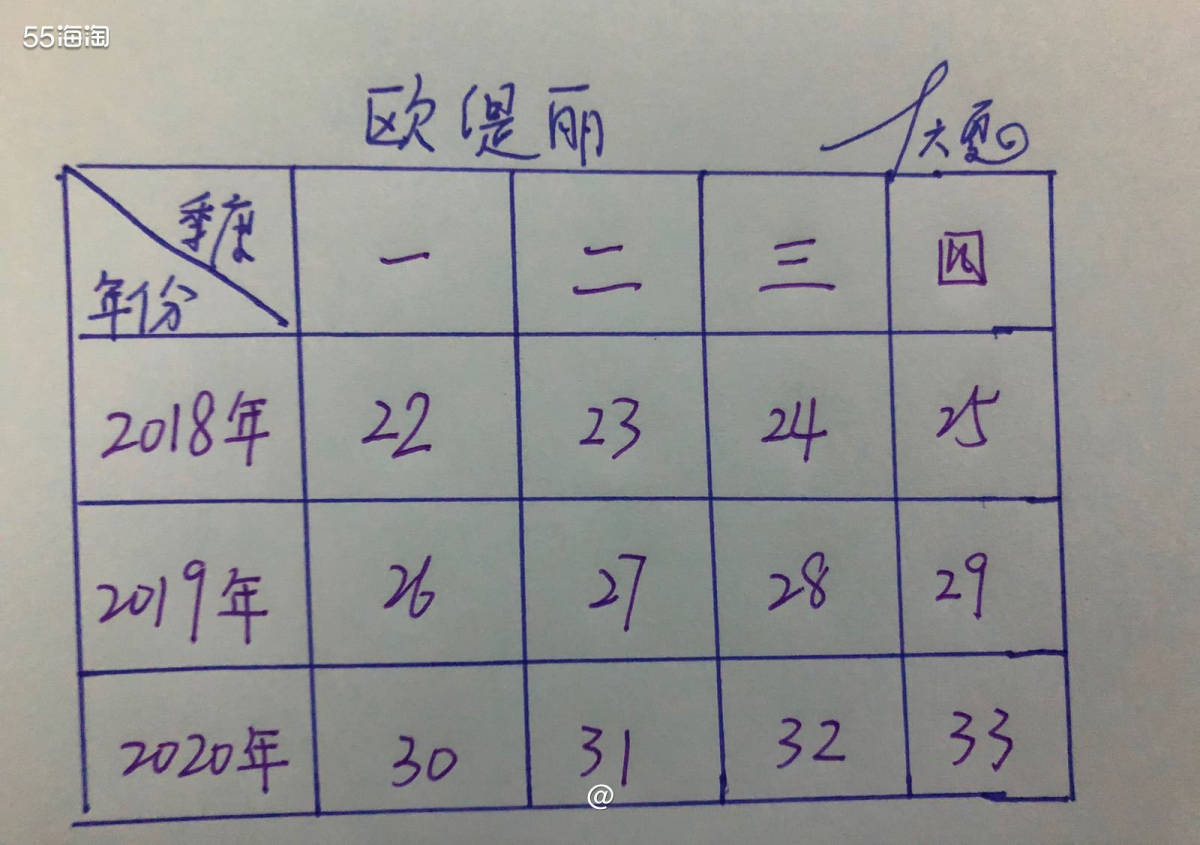 55海淘
欧缇丽
季度 一 二 三 四
年份
2018年 22 23 24 25
2019年 26 27 28 29
2020年 30 31 32 33
@